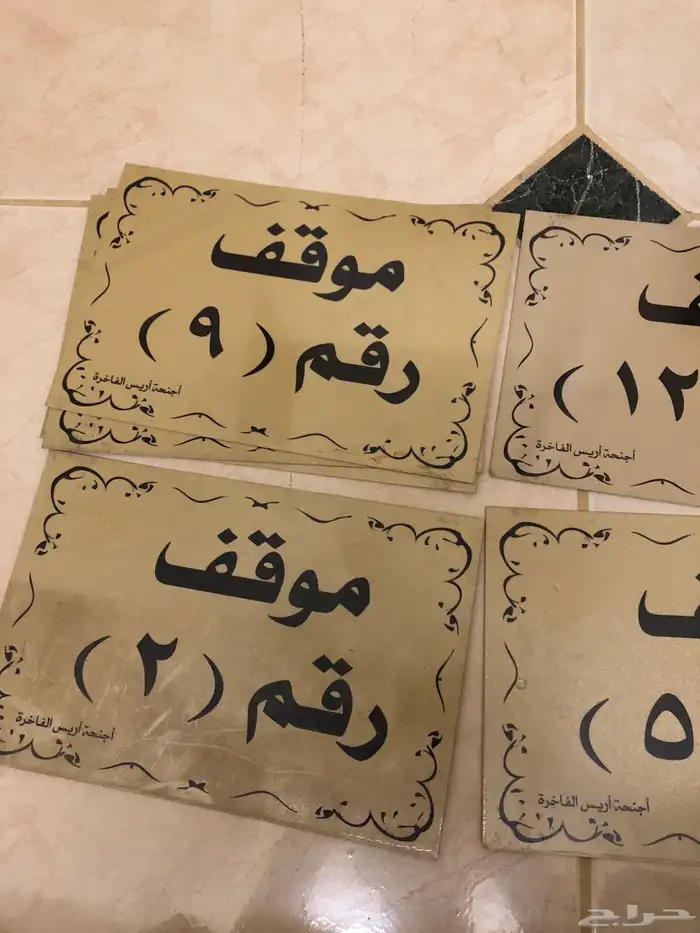 موقف
رقم ( ٩ )
أجنحة أريس الفاخرة
ف
( ١٢
أجنحة أريس الفاخرة
موقف
رقم ( ٢ )
أجنحة أريس الفاخرة
ف
( ٥
أجنحة أريس الفاخرة
حراج